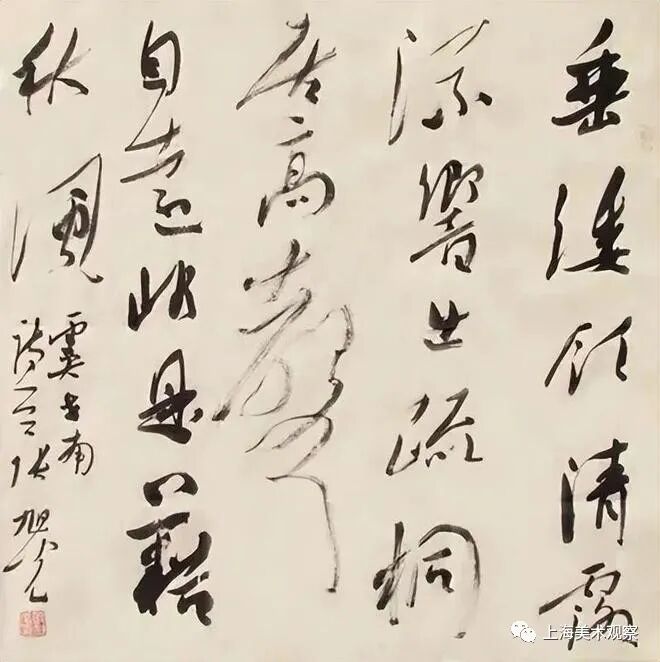 垂緌飲清露
流響出疏桐
居高聲
自遠非是藉
秋風 虞世南
詩一首 張旭光
上海美术观察